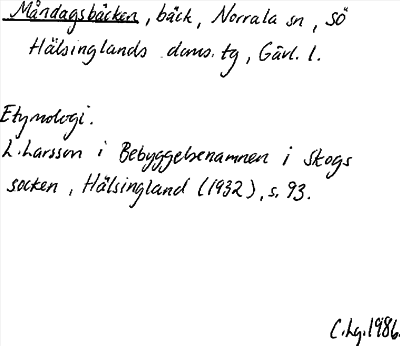 Måndagsbäcken, bäck, Norrala sn, SÖ
Hälsinglands doms. tg, Gävl. l.
Etymologi.
L. Larsson i Bebyggelsenamnen i Skogs
socken, Hälsingland (1932), s. 93.
C. Lg. 1986.